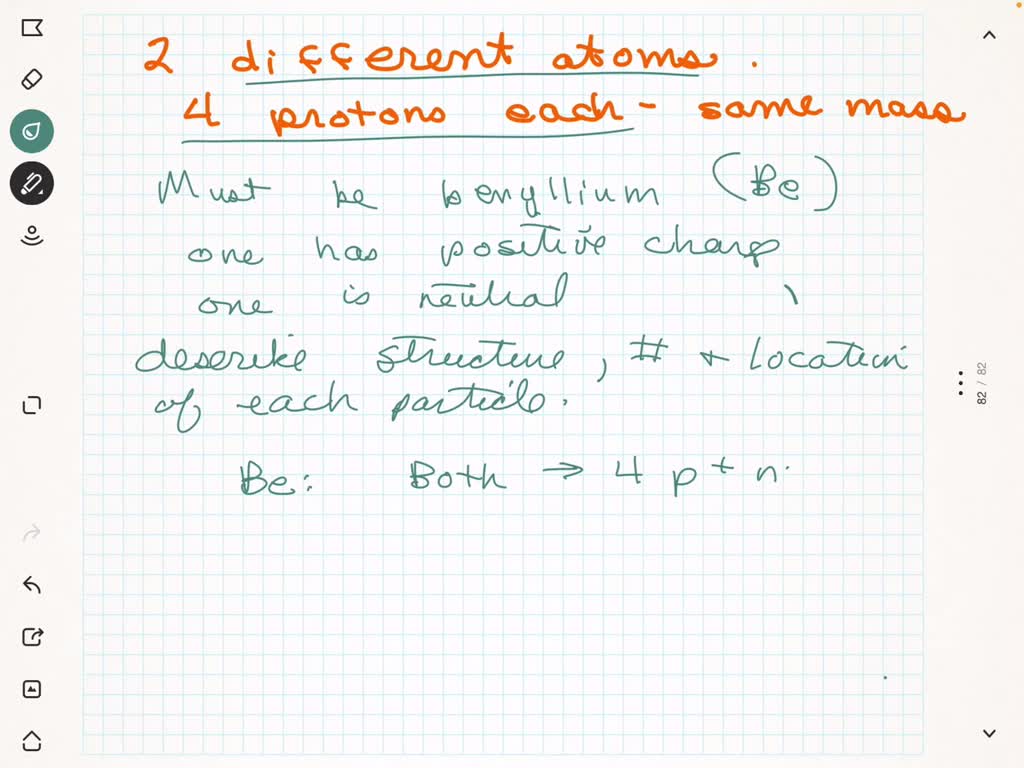 2 different atoms.
4 protons each - same mass
Must be beryllium (Be)
one has positive charge
one is neutral
describe structure, # + location
of each particle.
Be: Both → 4 p + n
82 / 82